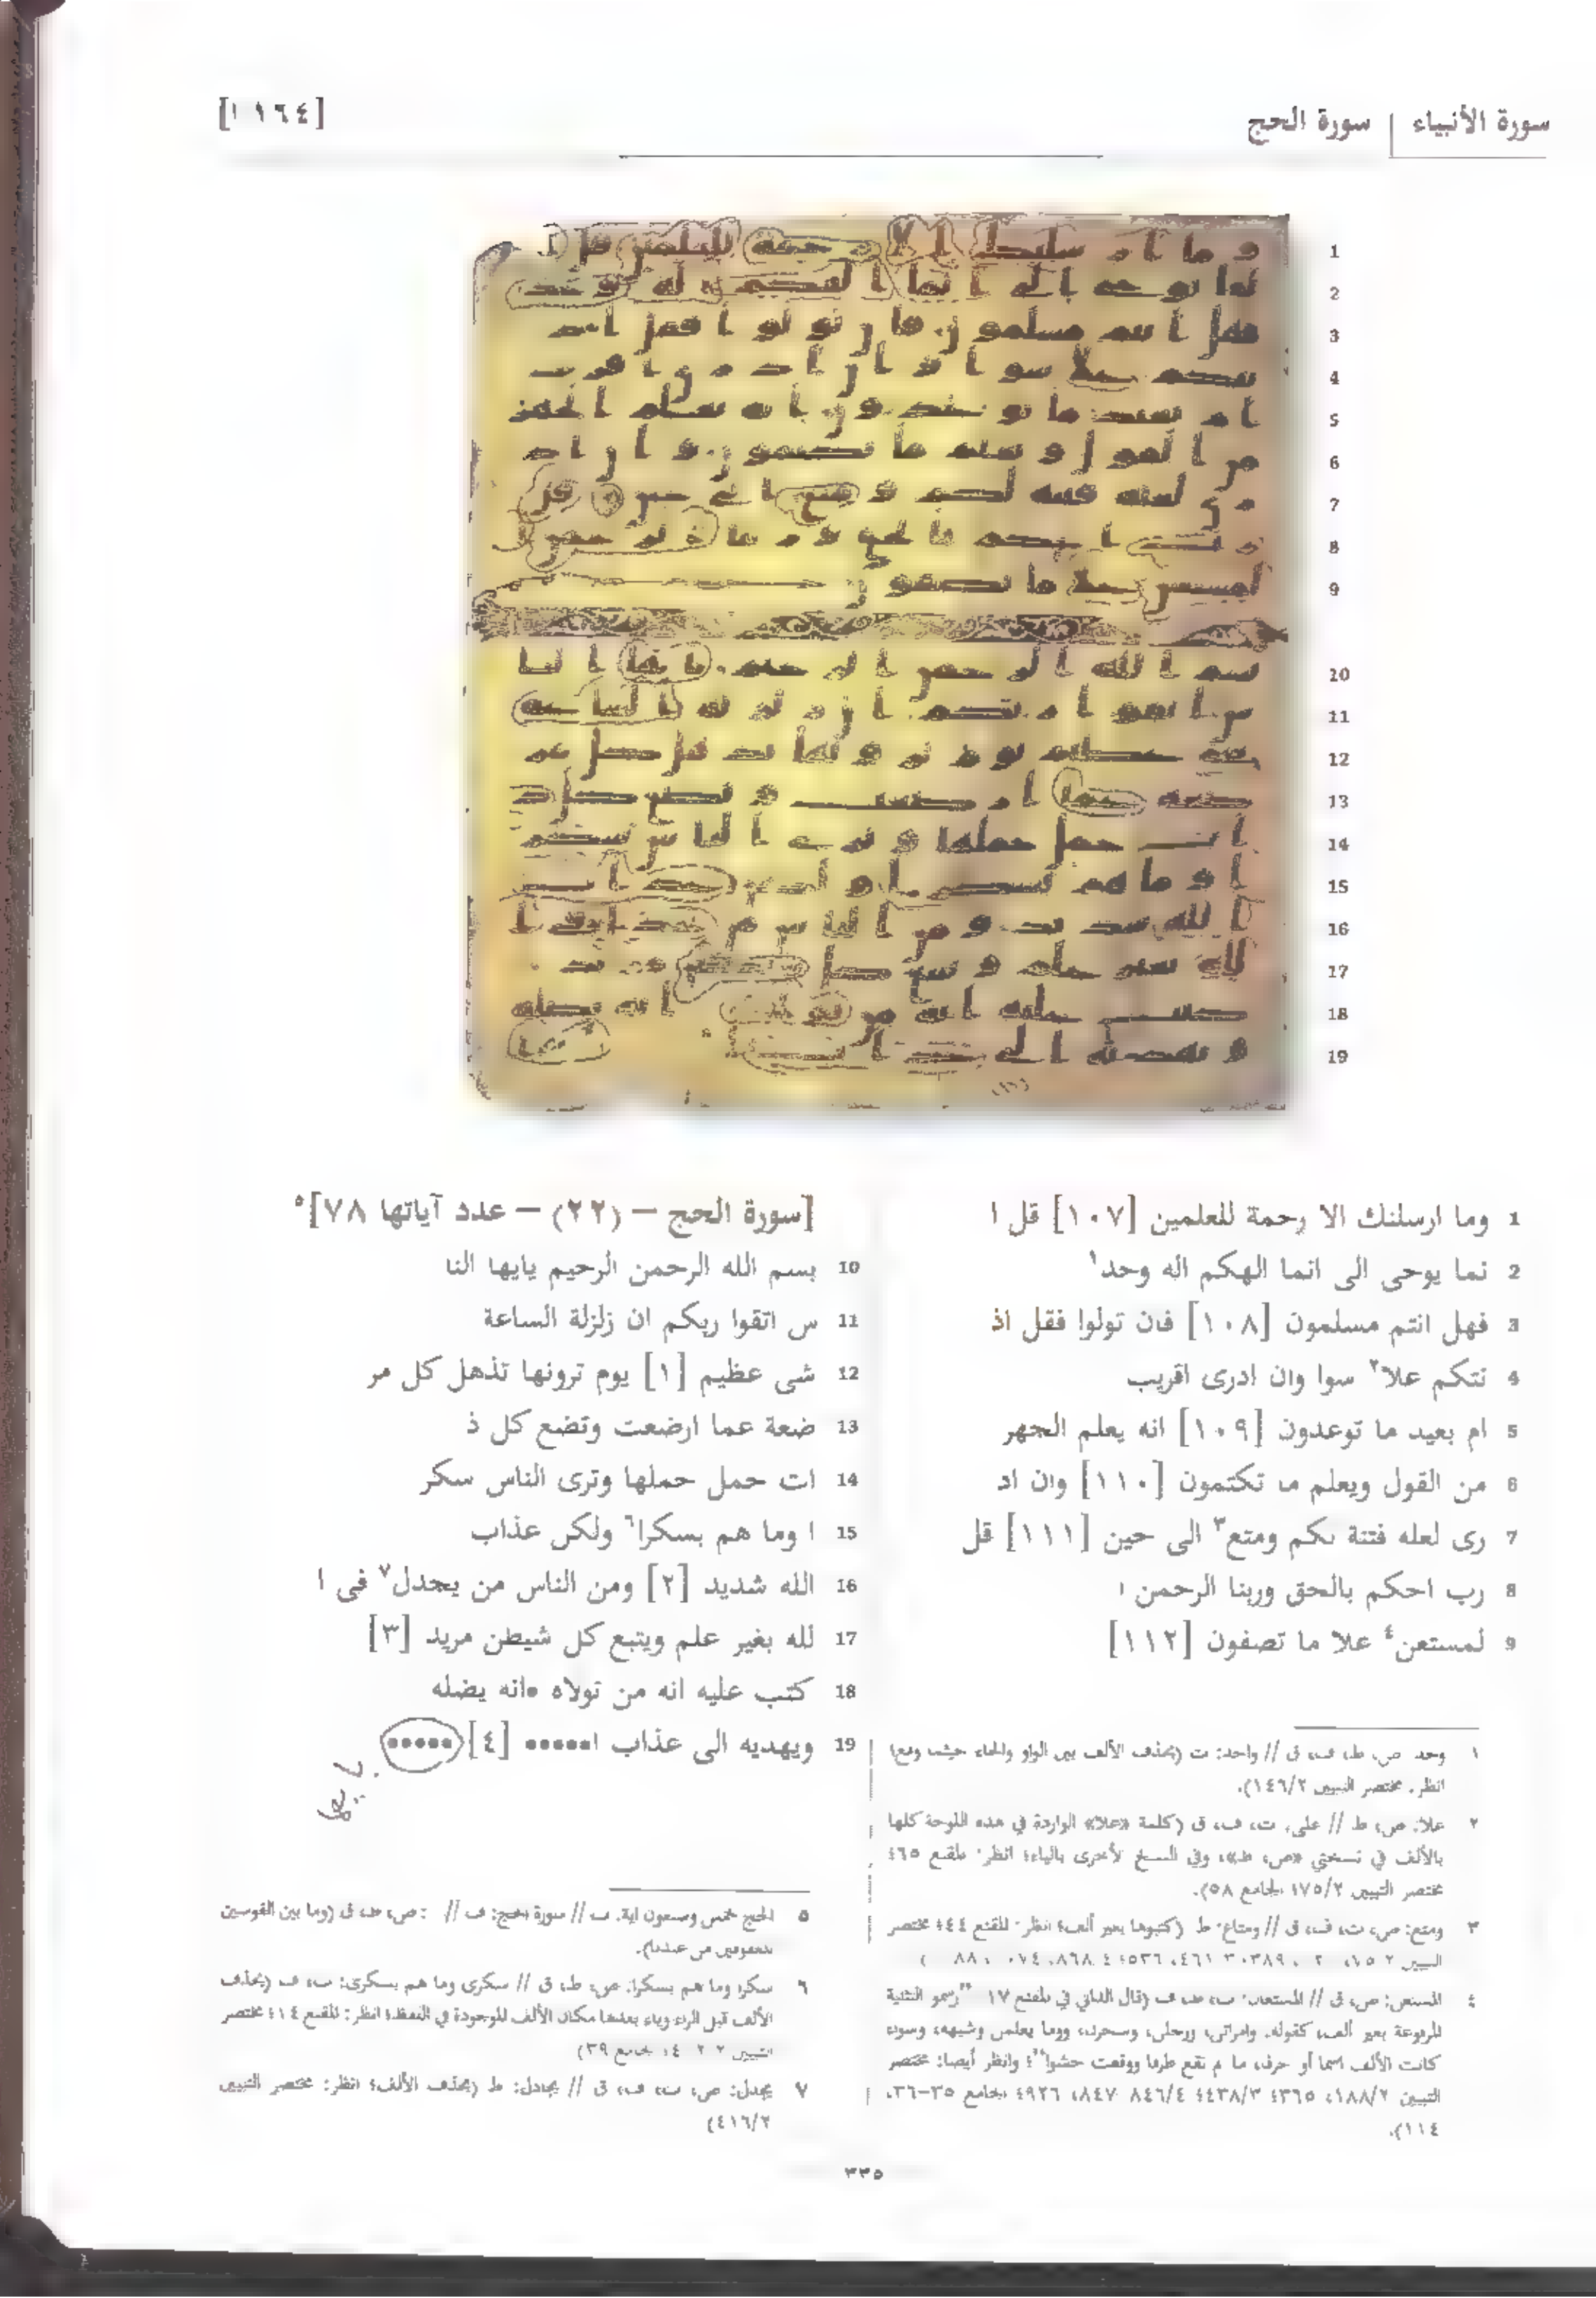 سورة الأنبياء | سورة الحج
[١٦٤ ا]
1 وما ارسلنك الا رحمة للعلمين [١٠٧] قل ا
2 نما يوحى الى انما الهكم اله وحد١
3 فهل انتم مسلمون [١٠٨] فان تولوا فقل اذ
4 نتكم علا٢ سوا وان ادرى اقريب
5 ام بعيد ما توعدون [١٠٩] انه يعلم الجهر
6 من القول ويعلم ما تكتمون [١١٠] وان اد
7 رى لعله فتنة لكم ومتع٣ الى حين [١١١] قل
8 رب احكم بالحق وربنا الرحمن ا
9 لمستعن٤ علا ما تصفون [١١٢]
[سورة الحج – (٢٢) – عدد آياتها ٧٨]٥
10 بسم الله الرحمن الرحيم يايها النا
11 س اتقوا ربكم ان زلزلة الساعة
12 شى عظيم [١] يوم ترونها تذهل كل مر
13 ضعة عما ارضعت وتضع كل ذ
14 ات حمل حملها وترى الناس سكر
15 ا وما هم بسكرا٦ ولكن عذاب
16 الله شديد [٢] ومن الناس من يجدل٧ فى ا
17 لله بغير علم ويتبع كل شيطن مريد [٣]
18 كتب عليه انه من تولاه فانه يضله
19 ويهديه الى عذاب ا••••• [٤] •••••
١ وحد: ص، ط، ف، ق // واحد: ت (بحذف الألف بين الواو والحاء حيثما وقع؛
انظر: مختصر التبيين ١٤٦/٢).
٢ علا: ص، ط // على: ت، ف، ق (كلمة «علا» الواردة في هذه اللوحة كلها
بالألف في نسختي «ص، ط»، وفي النسخ الأخرى بالياء؛ انظر: المقنع ٦٥؛
مختصر التبيين ١٧٥/٢؛ الجامع ٥٨).
٣ ومتع: ص، ت، ف، ق // ومتاع: ط (كتبوها بغير ألف؛ انظر: المقنع ٤٤؛ مختصر
التبيين
٤ المستعن: ص، ق // المستعان: ت، ط، ف (قال الداني في المقنع ١٧ "رسمو التثنية
المرفوعة بغير ألف، كقوله:
كانت الألف اسما أو حرف، ما لم تقع طرفا ووقعت حشوا"؛ وانظر أيضا: مختصر
التبيين ١٨٨/٢، ٣٦٥؛ ٤٣٨/٣؛ ٨٤٦/٤، ٨٤٧، ٩٢٦؛ الجامع ٣٥-٣٦،
١١٤).
٥ الحج خمس وسبعون اية: ت // سورة الحج: ف // - : ص، ط، ق (وما بين القوسين
المعقوفين من عندنا).
٦ سكرا وما هم بسكرا: ص، ط، ق // سكرى وما هم بسكرى: ت، ف (بحذف
الألف قبل الراء وياء بعدها مكان الألف الموجودة في اللفظ؛ انظر: المقنع ١٤؛ مختصر
التبيين
٧ يجدل: ص، ت، ف، ق // يجادل: ط (بحذف الألف؛ انظر: مختصر التبيين
٤١٦/٢)
٣٣٥